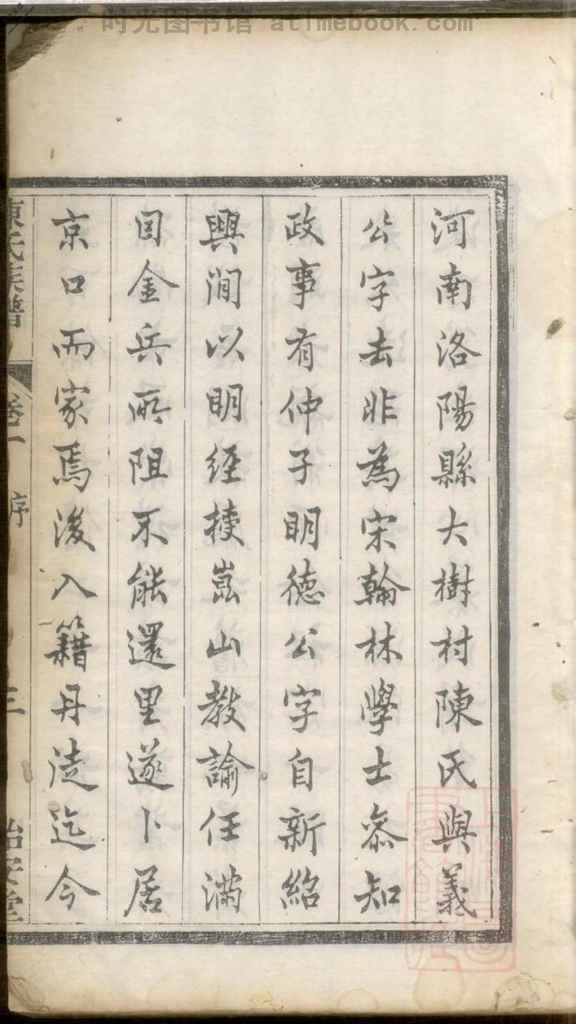 时光图书馆 atimebook.com
河南洛陽縣大樹村陳氏與義
公字去非為宋翰林學士叅知
政事有仲子明德公字自新紹
興间以明經授崑山教諭任滿
因金兵所阻不能還里遂卜居
京口而家焉後入籍丹徒迄今
陳氏族譜 卷一 序 三